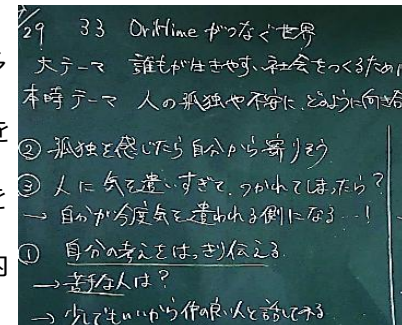 /29 33 OriHimeがつなぐ世界
大テーマ 誰もが生きやすい社会をつくるために
本時テーマ 人の孤独や不安に、どのように向き合
② 孤独を感じたら自分から寄りそう
③ 人に気を遣いすぎて、つかれてしまったら?
→ 自分が今度気を遣われる側になる…!
① 自分の考えをはっきり伝える
→ 苦手な人は?
→ 少しでもいいから仲の良い人と話してみる
を
と
内